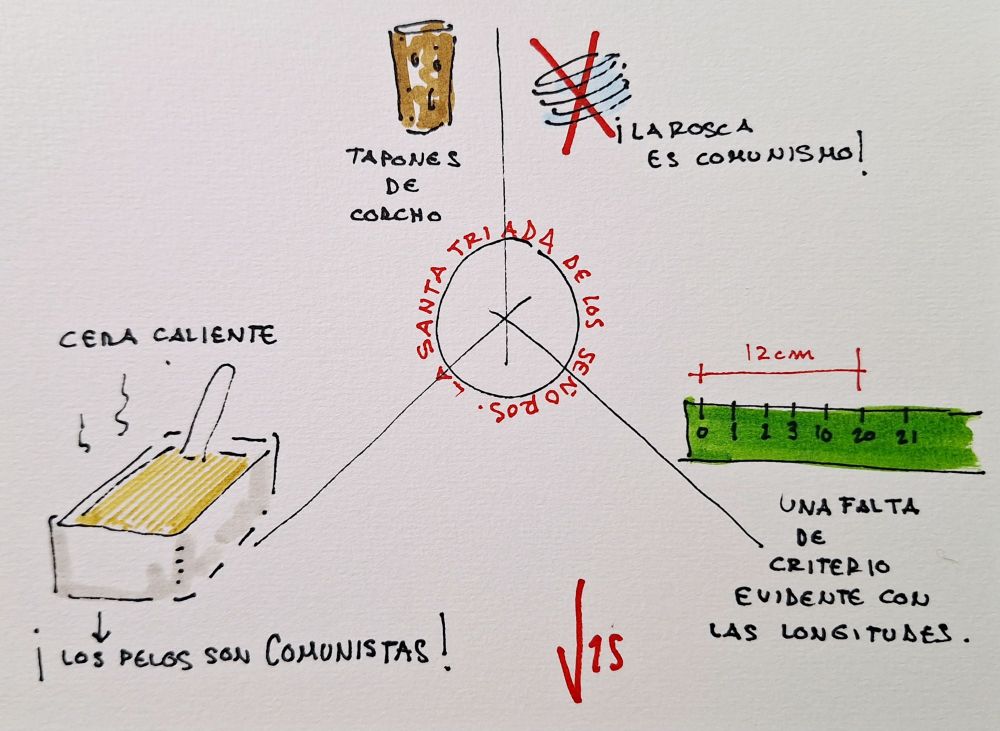 TAPONES
DE
CORCHO
¡LA ROSCA
ES COMUNISMO!
LA SANTA TRIADA DE LOS SEÑOROS.
CERA CALIENTE
¡LOS PELOS SON COMUNISTAS!
12cm
0 1 2 3 10 20 21
UNA FALTA
DE
CRITERIO
EVIDENTE CON
LAS LONGITUDES.
√15